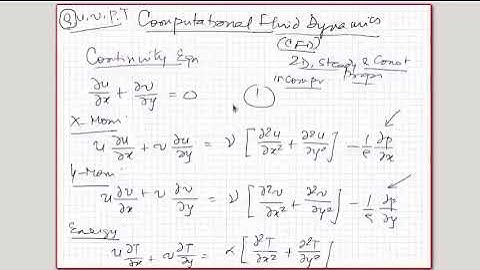 ⑧ u, v, P, T Computational Fluid Dynamics
(CFD)
Continuity Eqn
2D, Steady & Const
incompr props
∂u/∂x + ∂v/∂y = 0
①
X-Mom:
u ∂u/∂x + v ∂u/∂y = ν [ ∂²u/∂x² + ∂²u/∂y² ] - 1/ρ ∂p/∂x
Y-Mom:
u ∂v/∂x + v ∂v/∂y = ν [ ∂²v/∂x² + ∂²v/∂y² ] - 1/ρ ∂p/∂y
Energy
u ∂T/∂x + v ∂T/∂y = α [ ∂²T/∂x² + ∂²T/∂y² ]